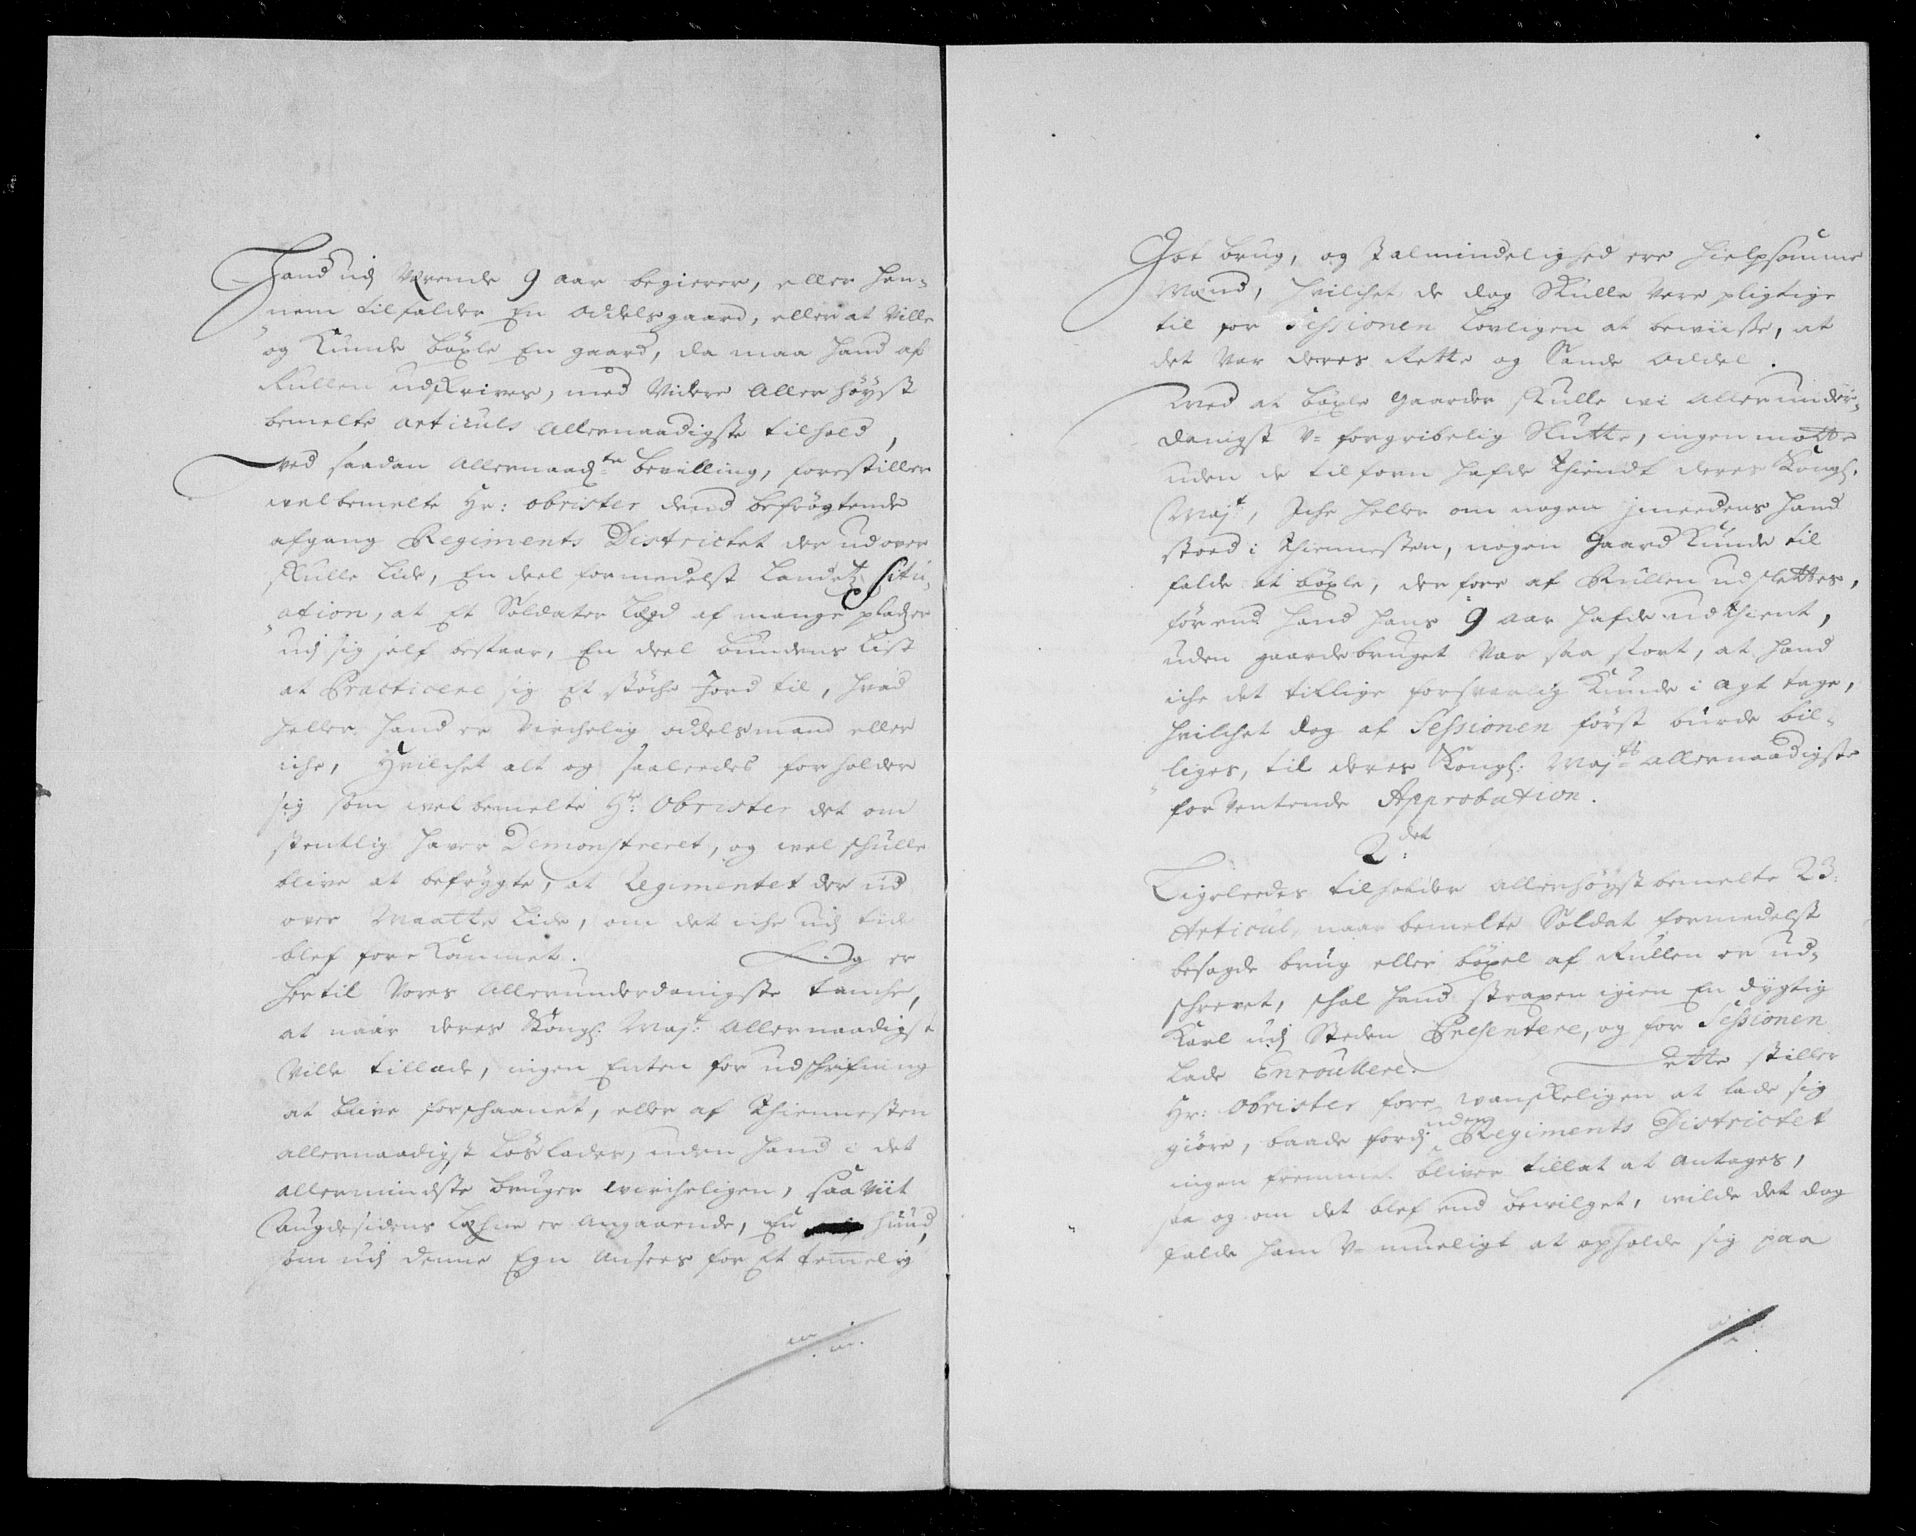 Hand udj Værende 9 aar begierer, eller han-
nem tilfalder En odelsgaard, eller at Ville
og Kunde böxle En gaard, da maa hand af
Rullen udskrives, med Videre Allerhöyst
bemelte articuls Allernaadigste tilhold,
ved saadan Allernaadste bevilling, forestiller
welbemelte Hr: obrister dend befrögtende
afgang Regiments Districtet der udover
skulle Lide, En deel formedelst Landetz Situ-
ation, at Et Soldater Lægd af mange pladzer
udj sig self bestaar, En deel bundens List
at Practicere sig Et støche Jord til, hvad
heller hand er virchelig odelsmand eller
iche, Hvilchet alt og saaleedes forholder
sig som welbemelte Hr: Obrister det om
stentlig haver Demonstreret, og wel schulle
blive at befrygte, at Regimentet der ud
over Maatte Lide, om det iche udj tide
blef forekommet. Og er
hertil Vores Allerunderdanigste tanche,
at naar deres Kongl: Majt: Allernaadigst
Ville tillade, ingen Enten for udschrifning
at blive forschaanet, eller af Thiennesten
allernaadigst Löslades, uden hand i det
allermindste bruger wircheligen, saa Viit
Augdesidens Læhne er Angaaende, En huud,
som udj denne Egn Ansees for Et temmelig
Got brug, og Jalmindelighed ere hielpsomme
Mænd, hvilchet de dog Skulle være pligtige
til for Sessionen Lovligen at bewiisse, at
det Var deres Rette og Sande oddel.
Med at böxle gaarder skulle wi Allerunder-
danigst V- forgribelig Slutte, ingen motte
uden de tilforn hafde Thiendt deres Kongl:
Majt, Iche heller om nogen imeedens hand
stoed i Thiennesten, nogen Gaard Kunde til
falde at böxle, der fore af Rullen udslettes,
förend hand hans 9 aar hafde udthient,
uden gaardebruget var saa stort, at hand
iche det tillige forsvarlig Kunde i agt tage,
hvilchet dog af Sessionen först burde bil-
liges, til deres Kongl: Majts allernaadigste
forventende Approbation.
2det
Ligeleedes tilholder allerhöystbemelte 23:
Articul, naar bemelte Soldat formedelst
besagde brug eller böxel af Rullen er ud-
schrevet, schal hand straxen igien En dygtig
Karl udj Steden Presentere, og for Sessionen
lade Enroullere. Dette stiller
Hr: Obrister fore, wanskeligen at lade sig
giöre, baade fordj uden Regiments Districtet
ingen fremmet bliver tillat at Antages,
saa og om det blef end bevilget, wilde det dog
falde ham V- mueligt at opholde sig paa